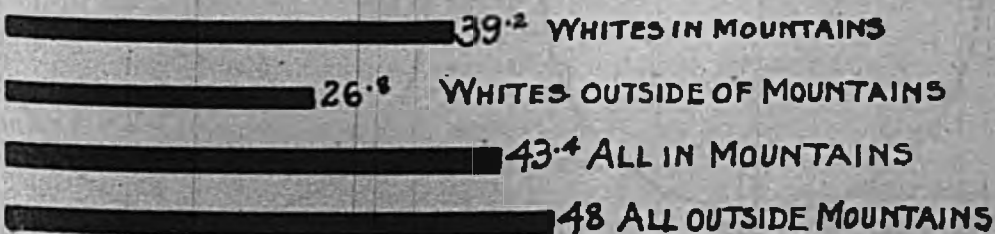 39.2 WHITES IN MOUNTAINS
26.8 WHITES OUTSIDE OF MOUNTAINS
43.4 ALL IN MOUNTAINS
48 ALL OUTSIDE MOUNTAINS